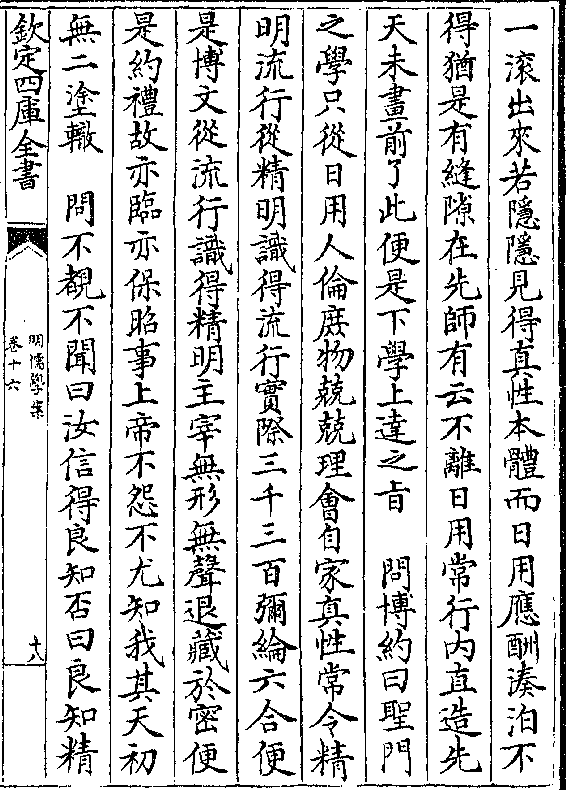 一滚出來若隱隱見得真性本體而日用應酬湊泊不
得猶是有縫隙在先師有云不離日用常行内直造先
天未畫前了此便是下學上達之旨　問博約曰聖門
之學只從日用人倫庶物兢兢理會自家真性常令精
明流行從精明識得流行實際三千三百彌綸六合便
是博文從流行識得精明主宰無形無聲退藏於密便
是約禮故亦臨亦保昭事上帝不怨不尤知我其天初
無二塗轍　問不覩不聞曰汝信得良知否曰良知精
欽定四庫全書
明儒學案
卷十六
十八